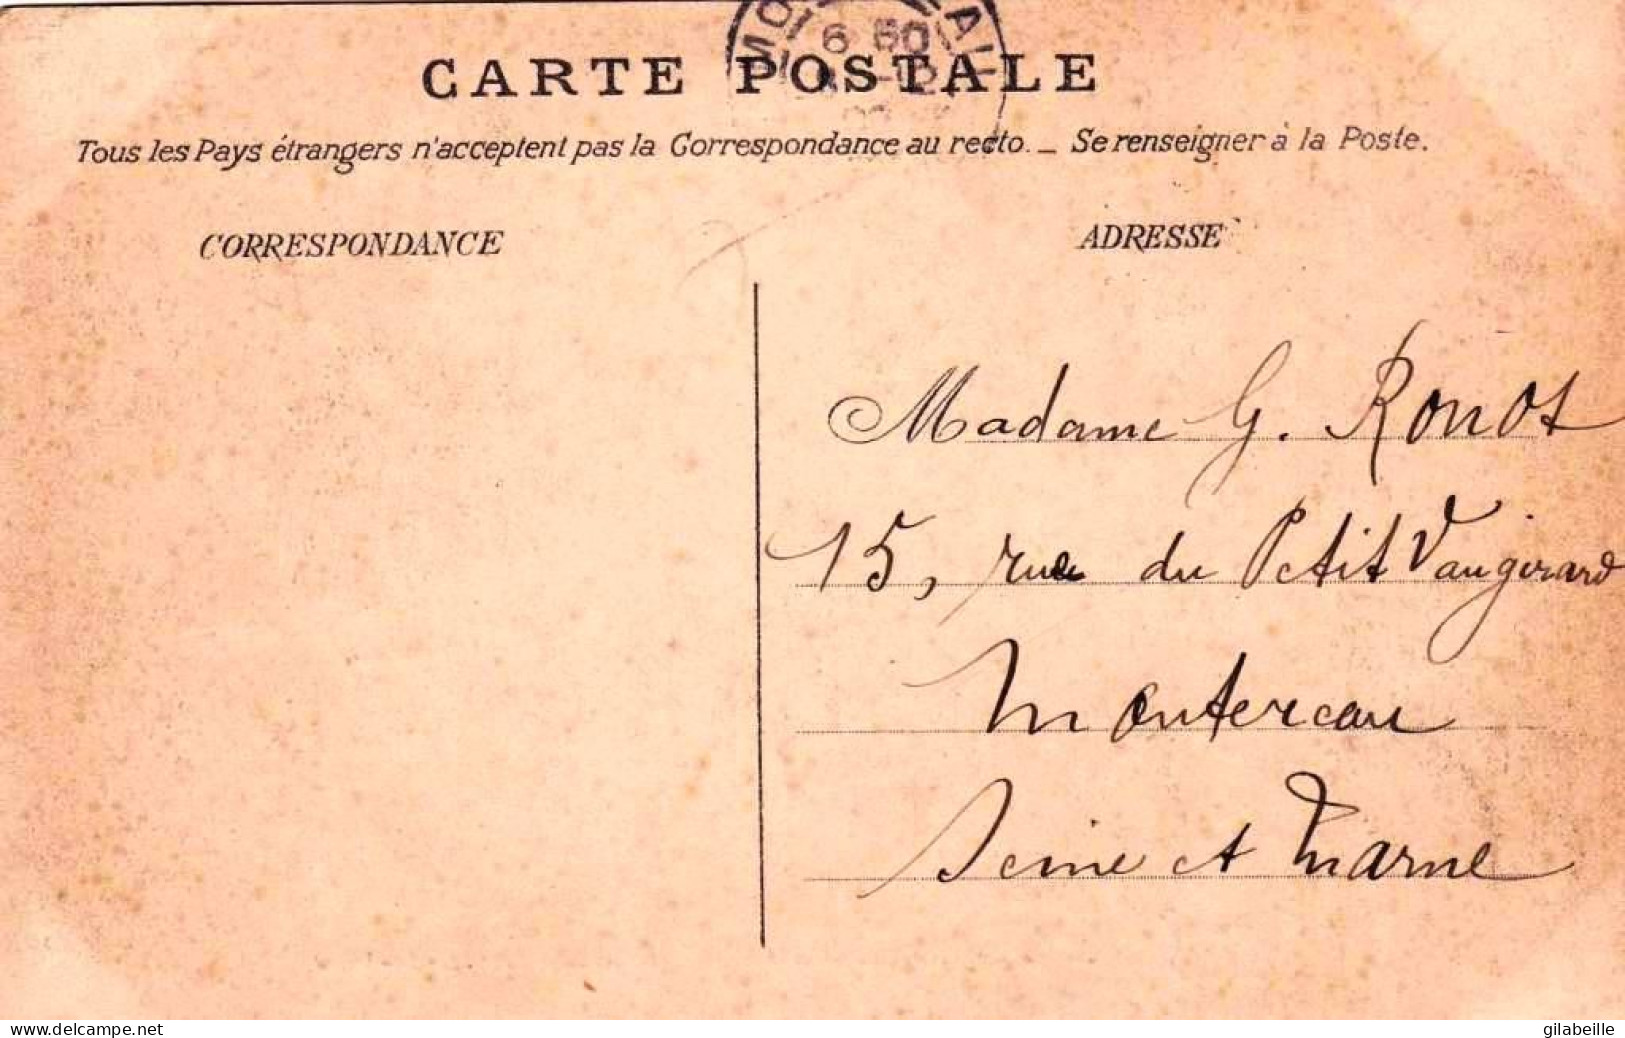 CARTE POSTALE
6 50
Tous les Pays étrangers n'acceptent pas la Correspondance au recto. _ Se renseigner à la Poste.
CORRESPONDANCE
ADRESSE
Madame G. Ronot
15, rue du Petit Vaugirard
Montereau
Seine et Marne
www.delcampe.net
gilabeille